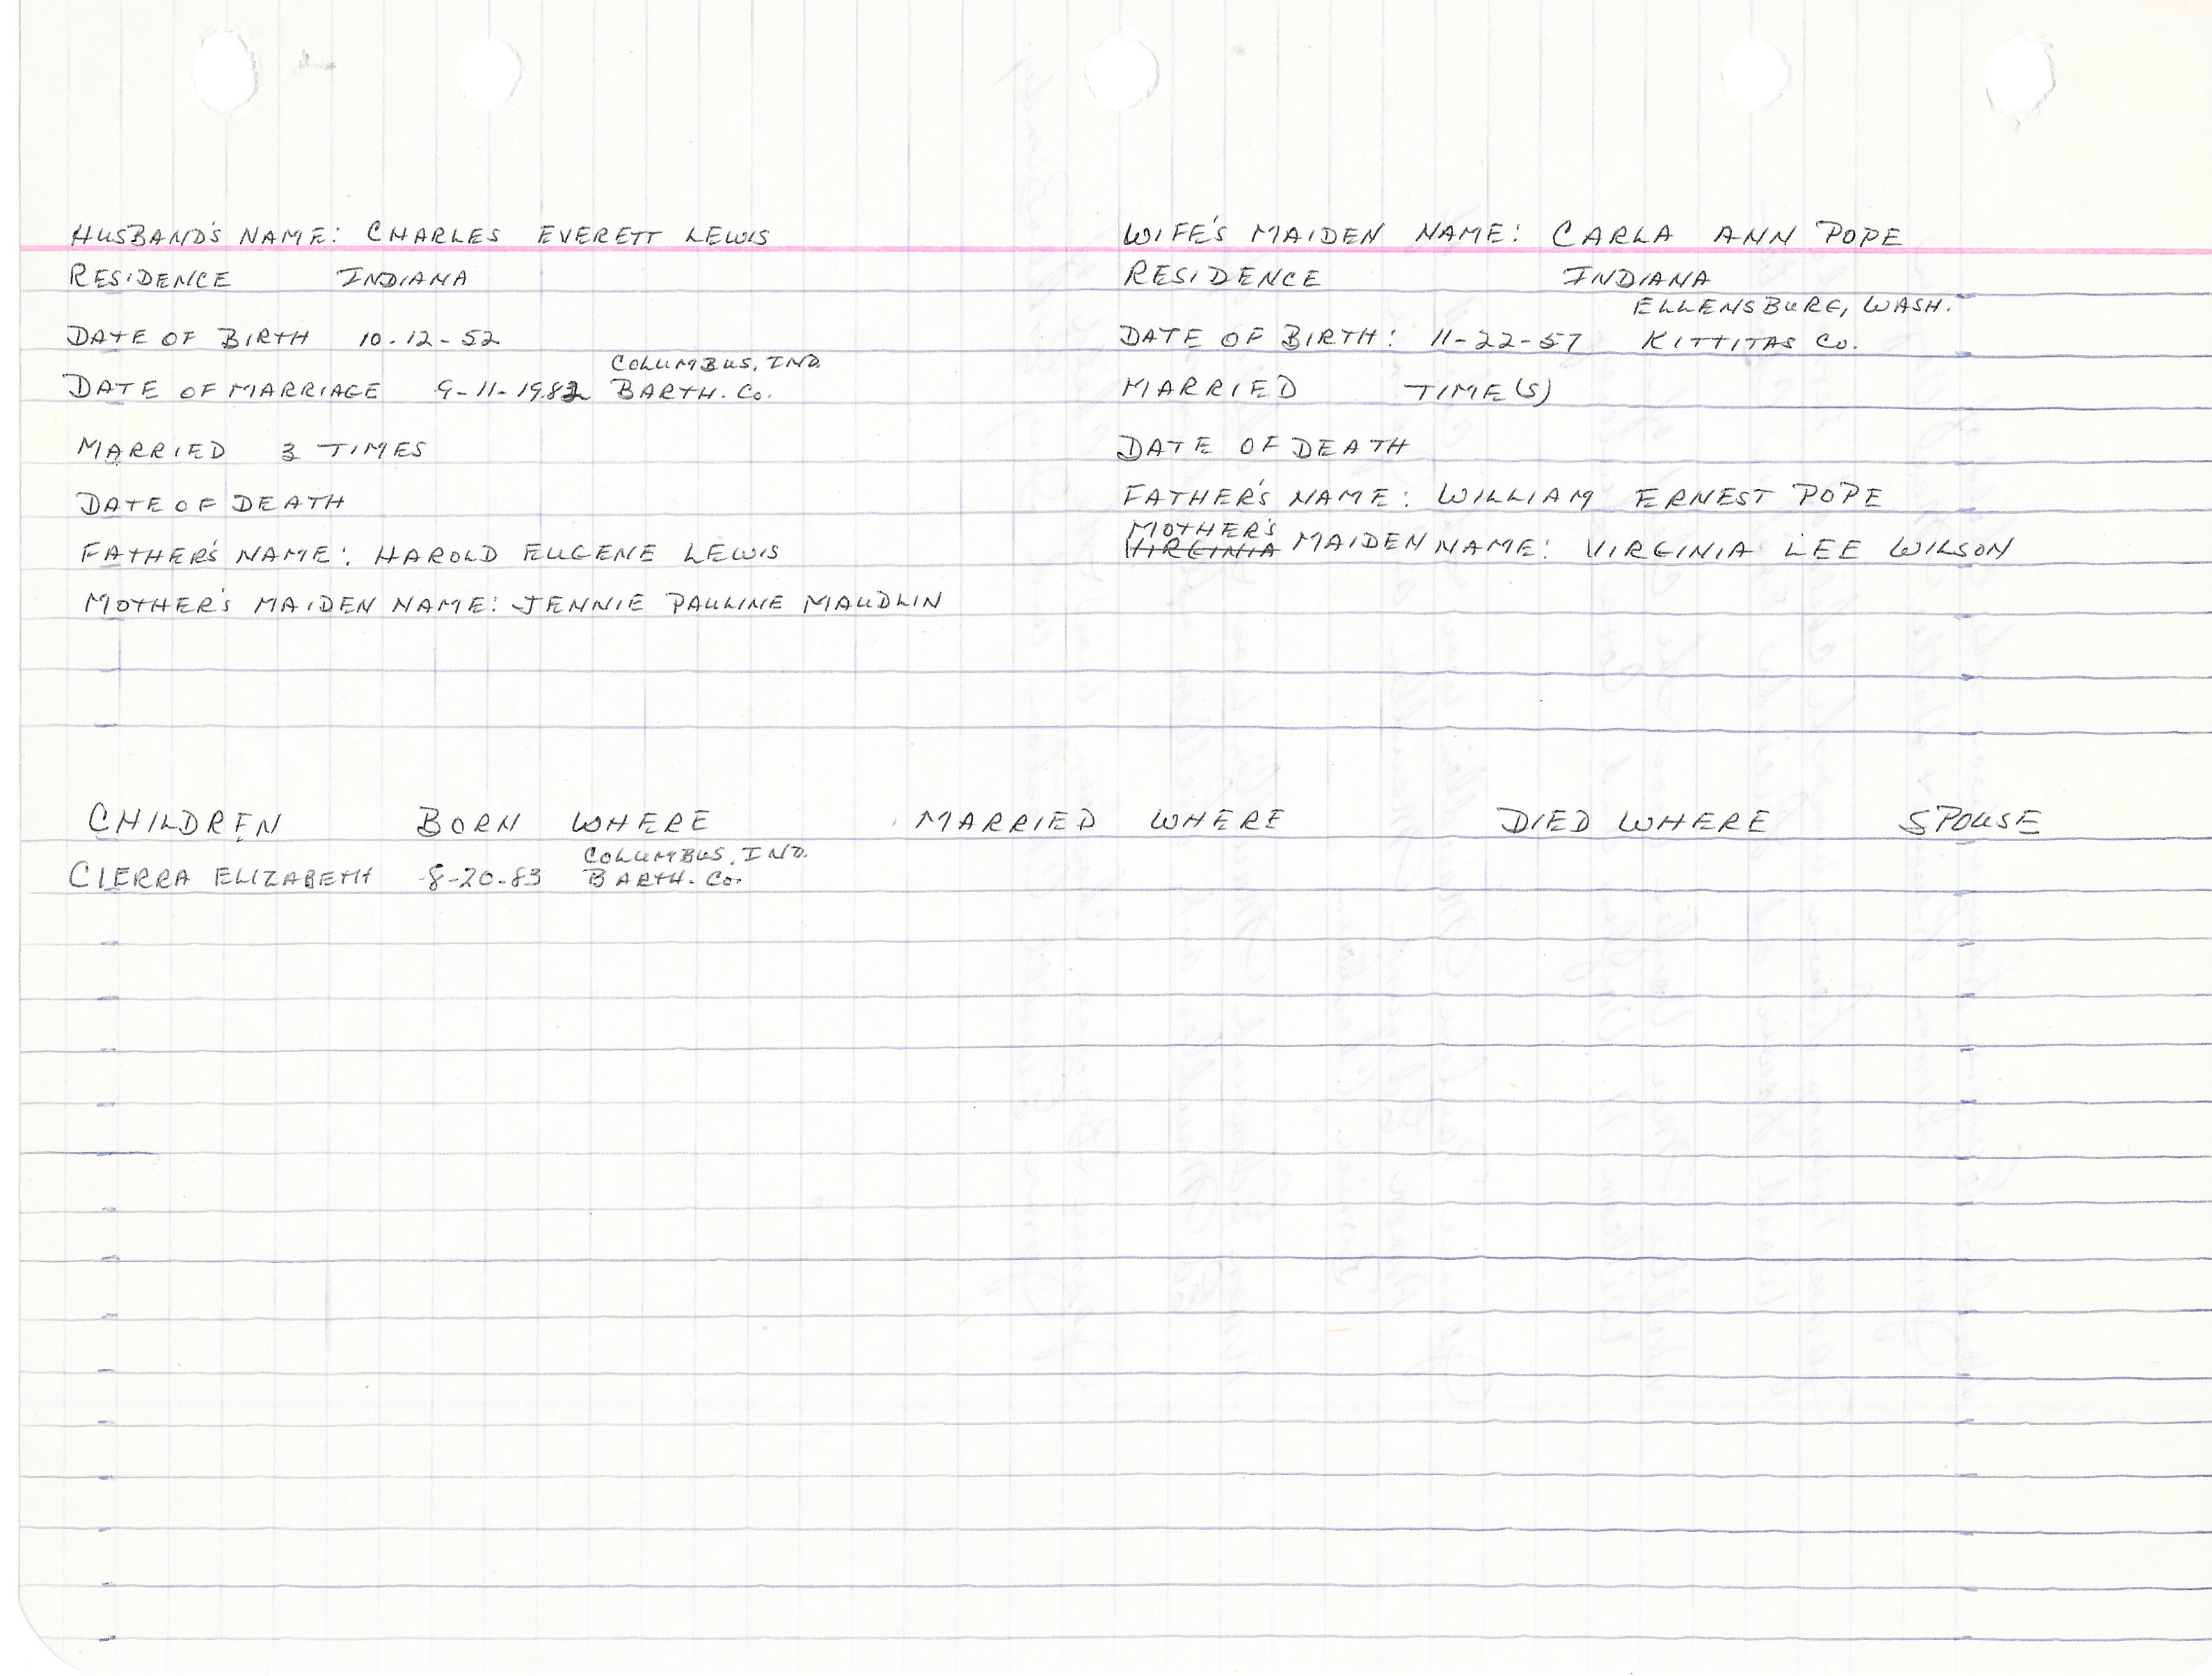 HUSBAND'S NAME: CHARLES EVERETT LEWIS
RESIDENCE INDIANA
DATE OF BIRTH 10-12-52
COLUMBUS, IND.
DATE OF MARRIAGE 9-11-1982 BARTH. CO.
MARRIED 3 TIMES
DATE OF DEATH
FATHER'S NAME: HAROLD EUGENE LEWIS
MOTHER'S MAIDEN NAME: JENNIE PAULINE MAUDLIN
WIFE'S MAIDEN NAME: CARLA ANN POPE
RESIDENCE INDIANA
ELLENSBURG, WASH.
DATE OF BIRTH: 11-22-57 KITTITAS CO.
MARRIED TIME(S)
DATE OF DEATH
FATHER'S NAME: WILLIAM ERNEST POPE
MOTHER'S
VIRGINIA MAIDEN NAME: VIRGINIA LEE WILSON
CHILDREN BORN WHERE MARRIED WHERE DIED WHERE SPOUSE
COLUMBUS, IND.
CIERRA ELIZABETH 8-20-83 BARTH. CO.